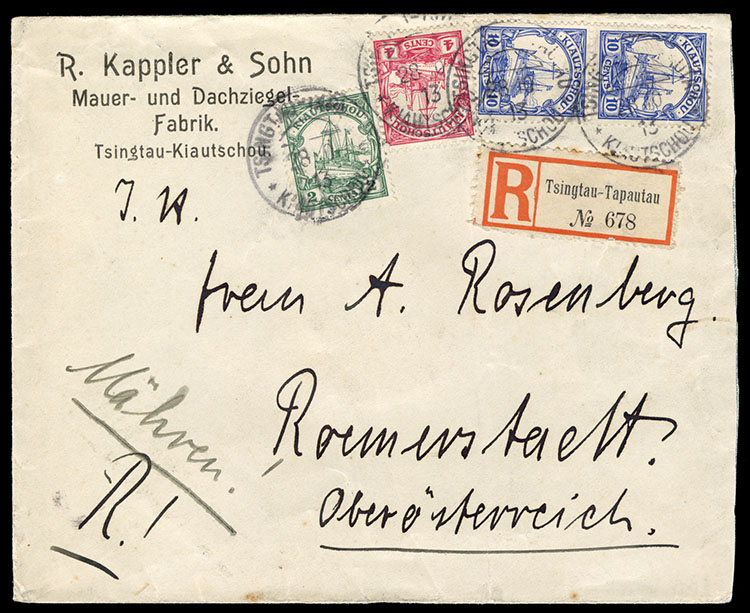 R. Kappler & Sohn
Mauer- und Dachziegel-
Fabrik.
Tsingtau-Kiautschou.
KIAUTSCHOU
2 CENTS 2
KIAUTSCHOU
4 CENTS 4
KIAUTSCHOU
10 CENTS 10
KIAUTSCHOU
10 CENTS 10
TSINGTAU
28
13
* KIAUTSCHOU
R
Tsingtau-Tapautau
№ 678
J. H.
A. Rosenberg.
Mähren.
Roemerstadt.
R!
Oberösterreich.